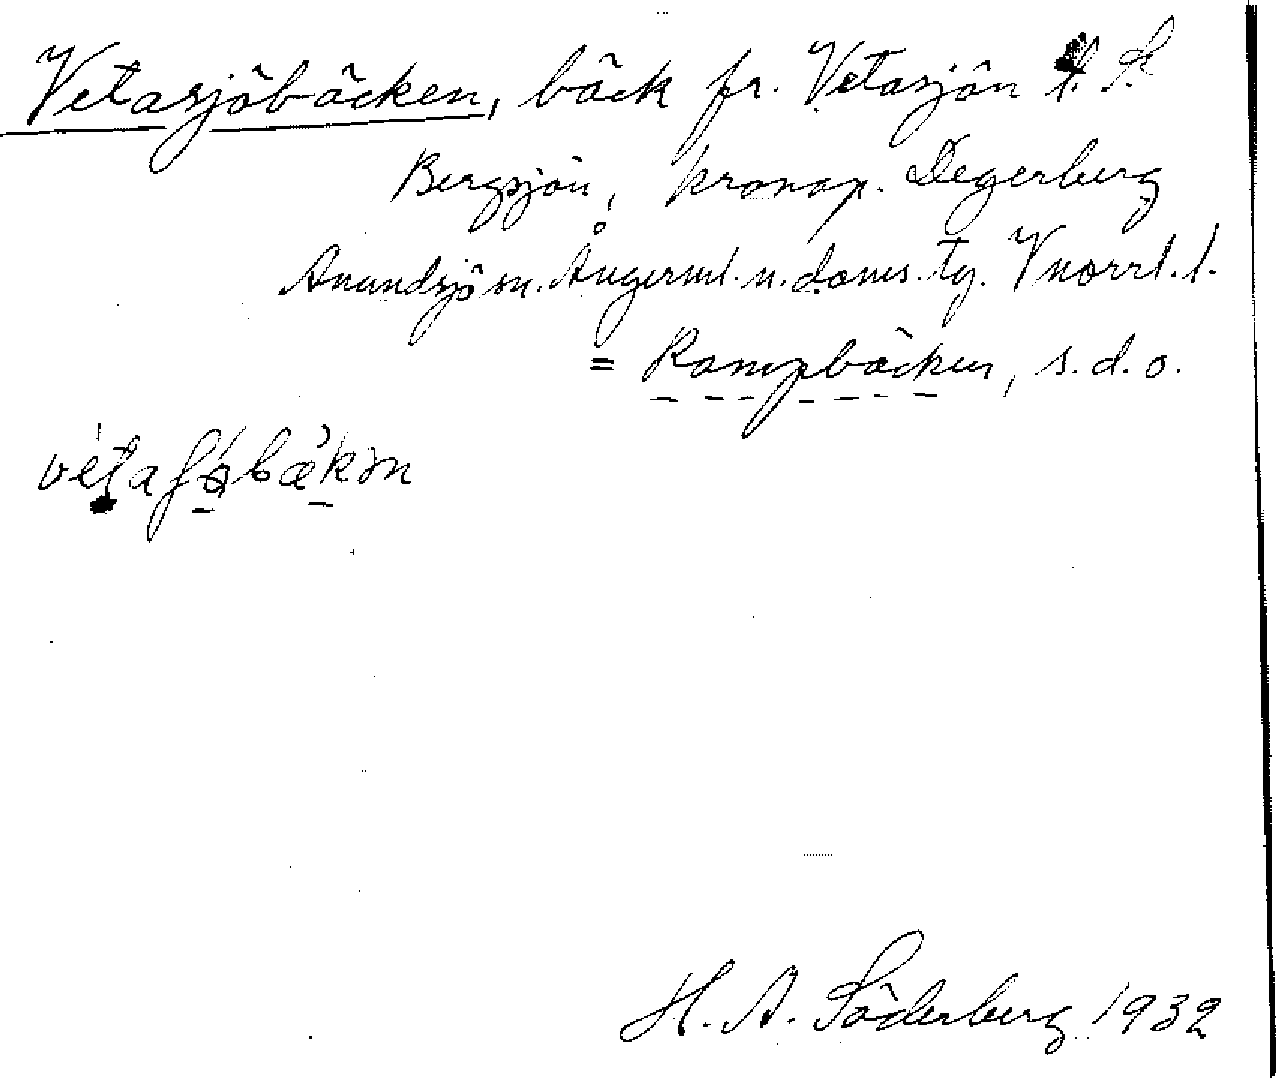 Vetasjöbäcken, bäck fr. Vetasjön t. St
Bergsjön, kronop. Degerberg
Anundsjö sn. Ångerml. n. doms. tg. Vnorrl. l.
= Rompbäcken, s.d.o.
H. A. Söderberg 1932